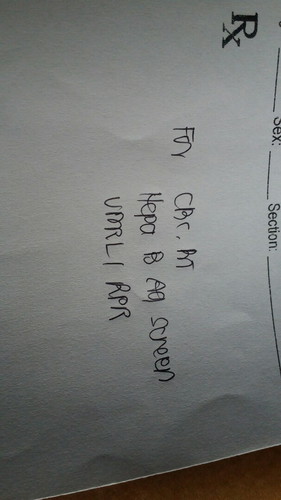 Sex: Section:
Rx
For CBC, BT
Hepa B Ag screen
VDRL / RPR